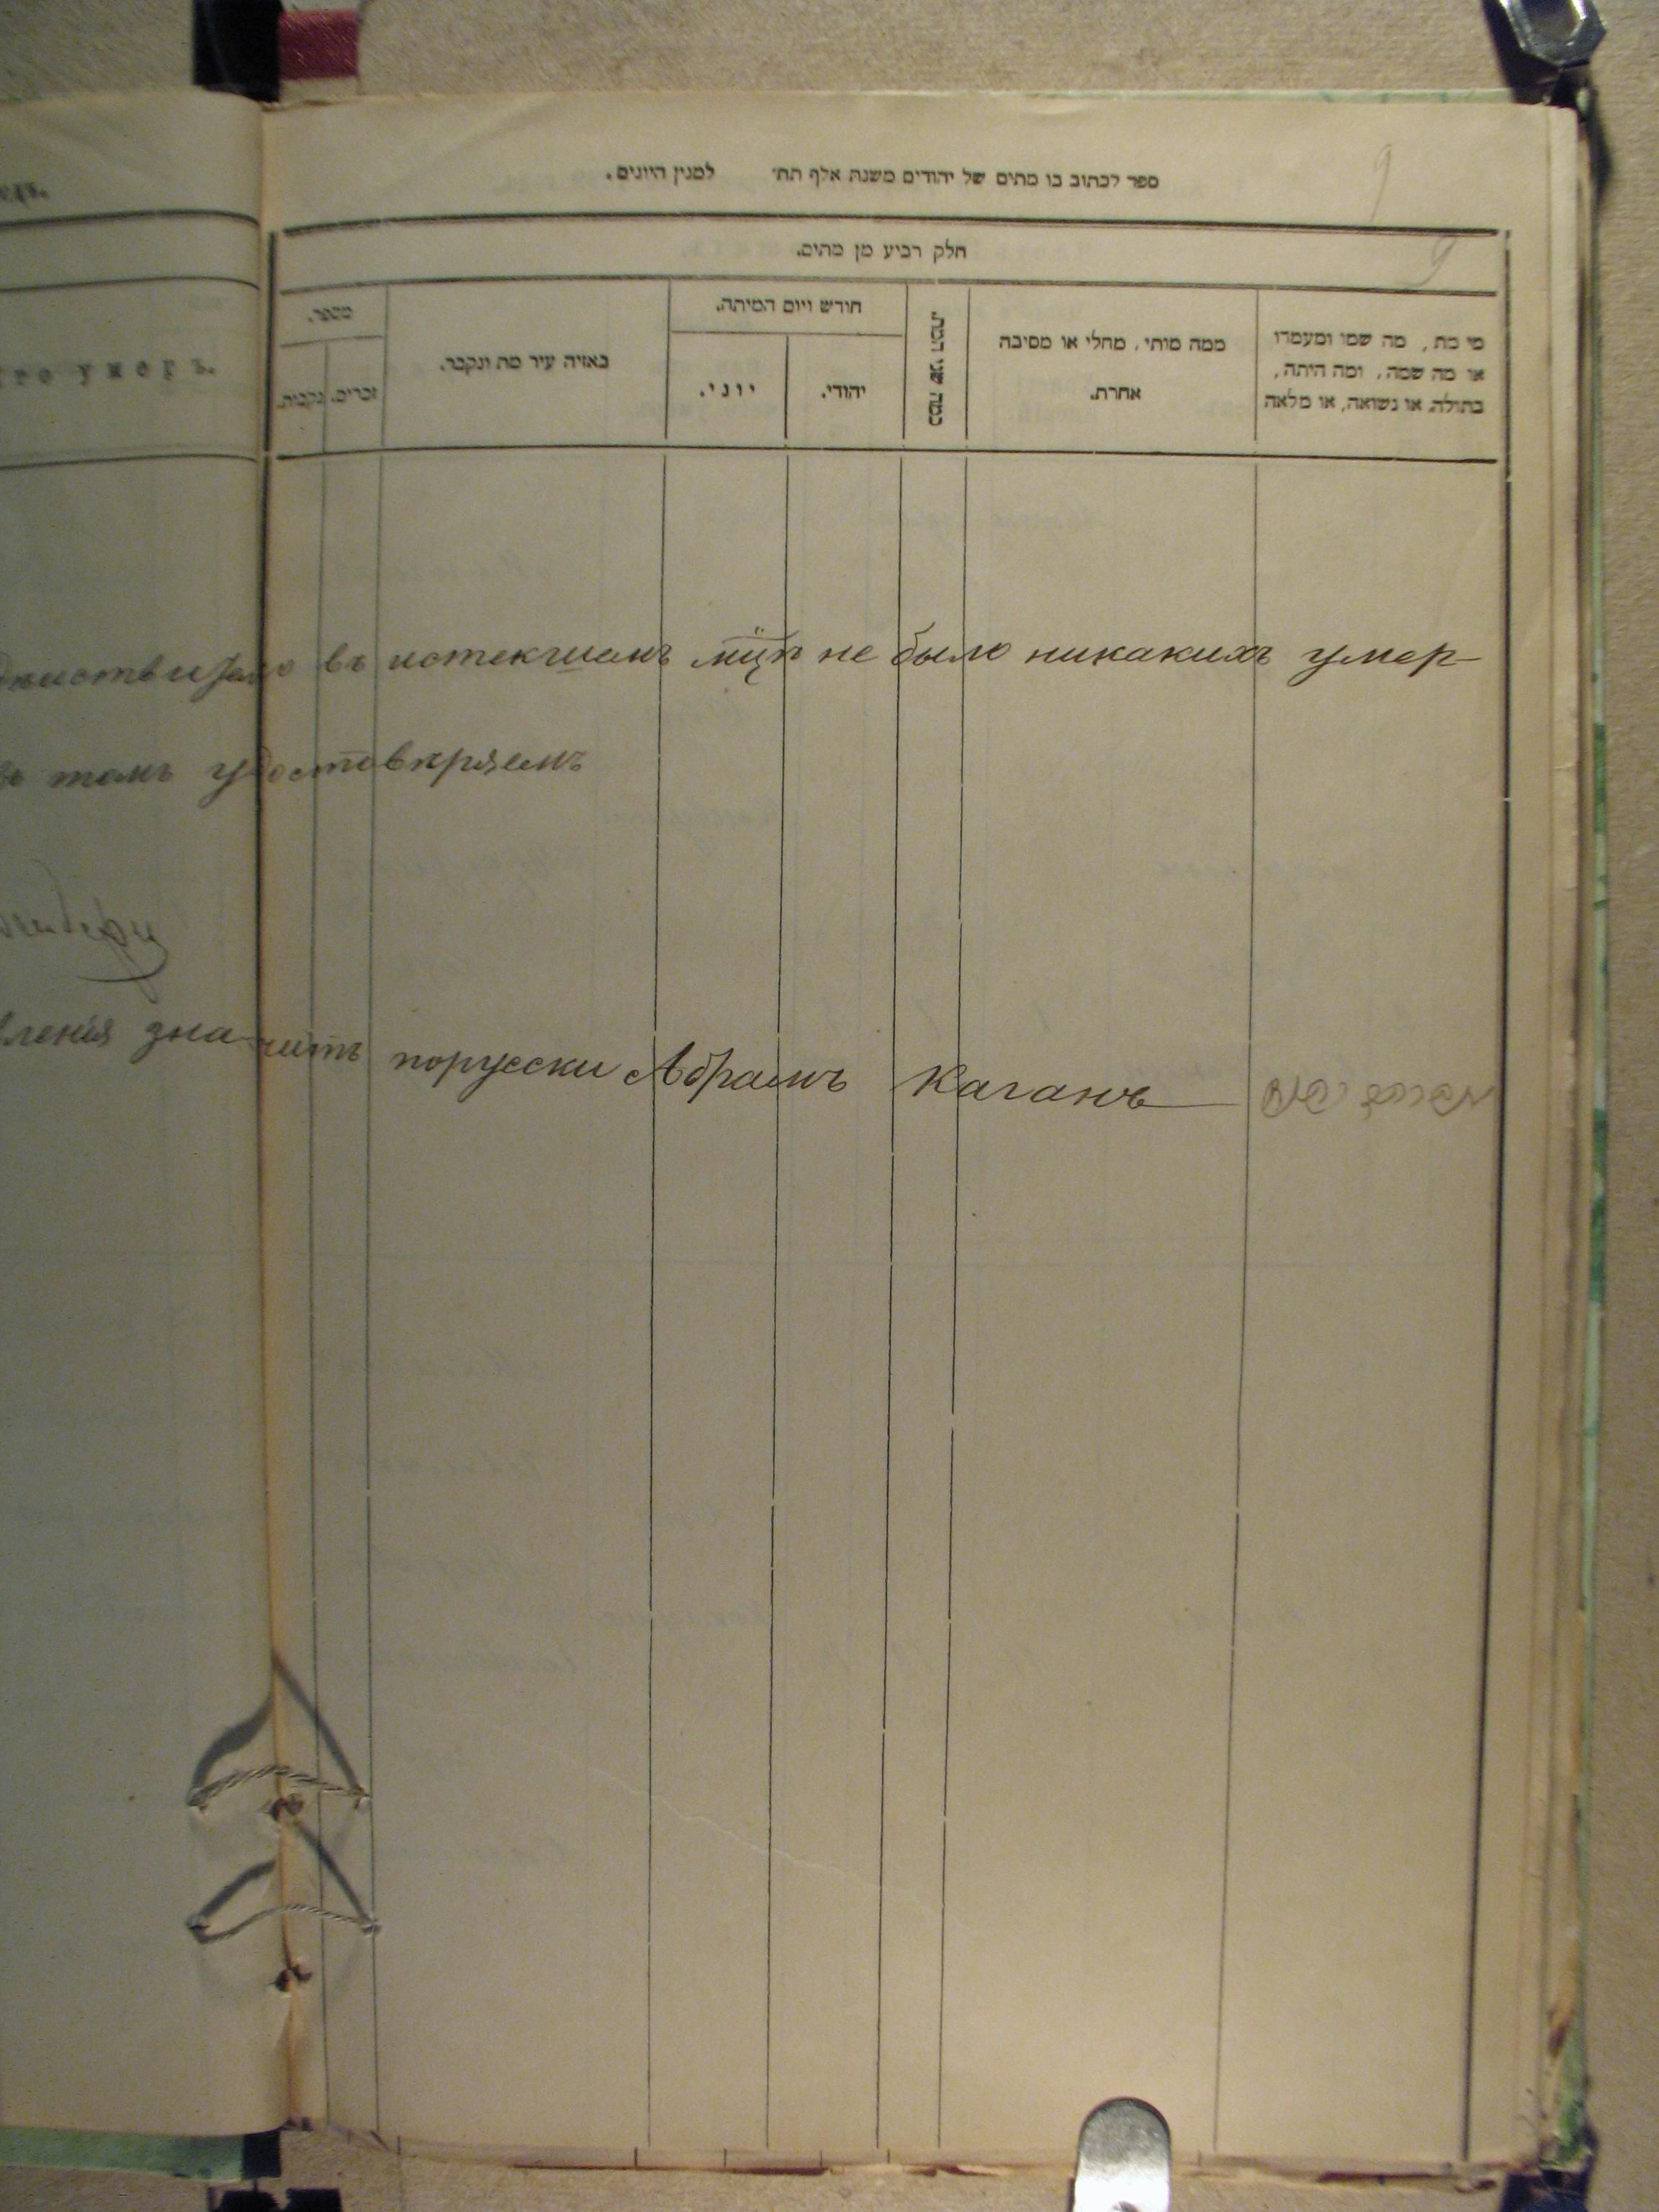 9
ספר לכתוב בו מתים של יהודים משנת אלף תת׳ למנין היונים.
9
חלק רביע מן מתים.
מי מת, מה שמו ומעמדו
או מה שמה, ומה היתה,
בתולה, או נשואה, או מלאה
ממה מותי, מחלי או מסיבה
אחרת.
כמה שני המת.
חודש ויום המיתה.
יהודי.
יוני.
באיזה עיר מת ונקבר.
מספר.
זכרים.
נקבות.
умеръ.
въ истекшемъ мцѣ не было никакихъ умер-
томъ удостовѣряемъ
вленія значитъ порусски Абрамъ Каганъ